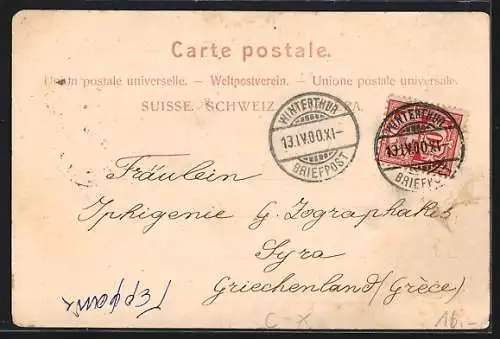 Carte postale.
Union postale universelle. — Weltpostverein. — Unione postale universale.
SUISSE. SCHWEIZ.
WINTERTHUR
13.IV.00.XI–
BRIEFPOST
WINTERTHUR
13.IV.00.XI–
BRIEFPOST
Fräulein
Iphigenie G. Zographakis
Syra
Griechenland (Grèce)
C-X
16.-